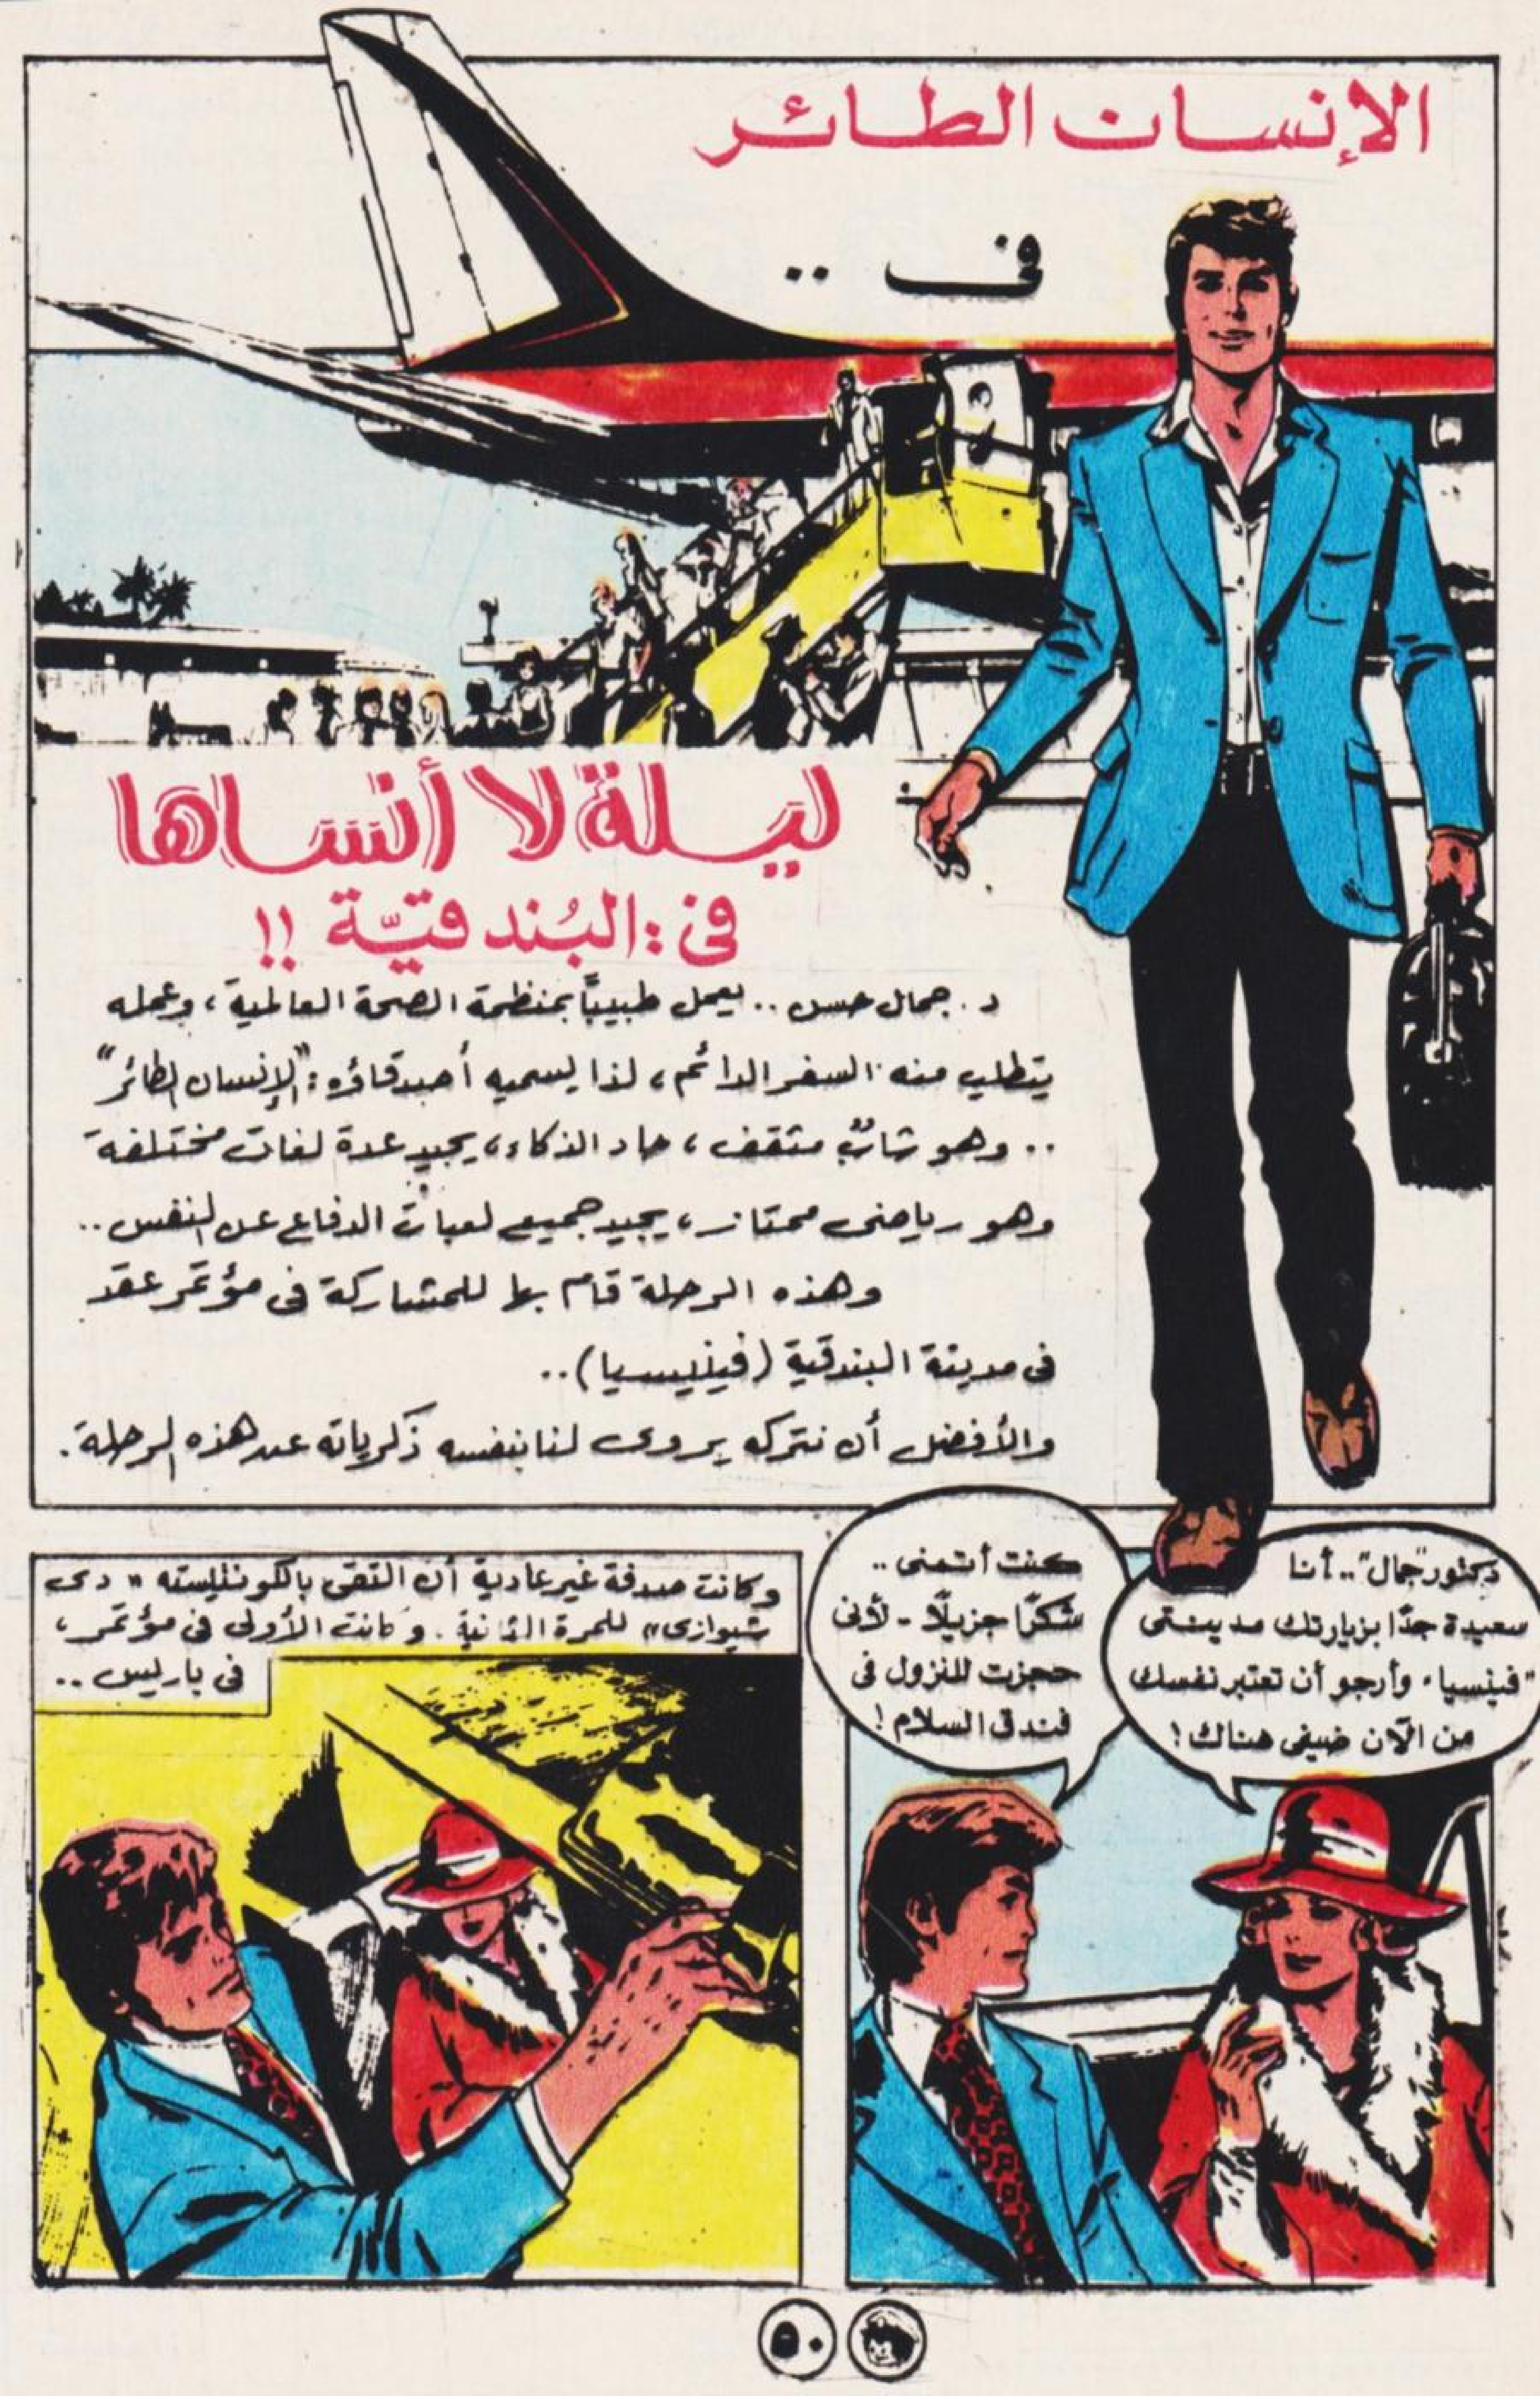 الإنسان الطائر
فى ..
ليلة لا أنساها
فى : البُندقيّة !!
د. جمال حسن .. يعمل طبيبًا بمنظمة الصحة العالمية ، وعمله
يتطلب منه السفر الدائم ، لذا يسميه أصدقاؤه : "الإنسان الطائر"
.. وهو شابٌ مثقف ، حاد الذكاء ، يجيد عدة لغات مختلفة
وهو رياضى ممتاز ، يجيد جميع لعبات الدفاع عن النفس ..
وهذه الرحلة قام بها للمشاركة فى مؤتمر عقد
فى مدينة البندقية (فينيسيا) ..
والأفضل أن نتركه يروى لنا بنفسه ذكرياته عن هذه الرحلة .
دكتور "جمال" .. أنا
سعيدة جدًا بزيارتك مدينتى
"فينسيا" وأرجو أن تعتبر نفسك
من الآن ضيفى هناك !
كنت أتمنى ..
شكرًا جزيلًا - لأنى
حجزت للنزول فى
فندق السلام !
وكانت صدفة غير عادية أن التقى بالكونتيسته « دى
شيوازى» للمرة الثانية . وكانت الأولى فى مؤتمر ،
فى باريس ..
٥٠